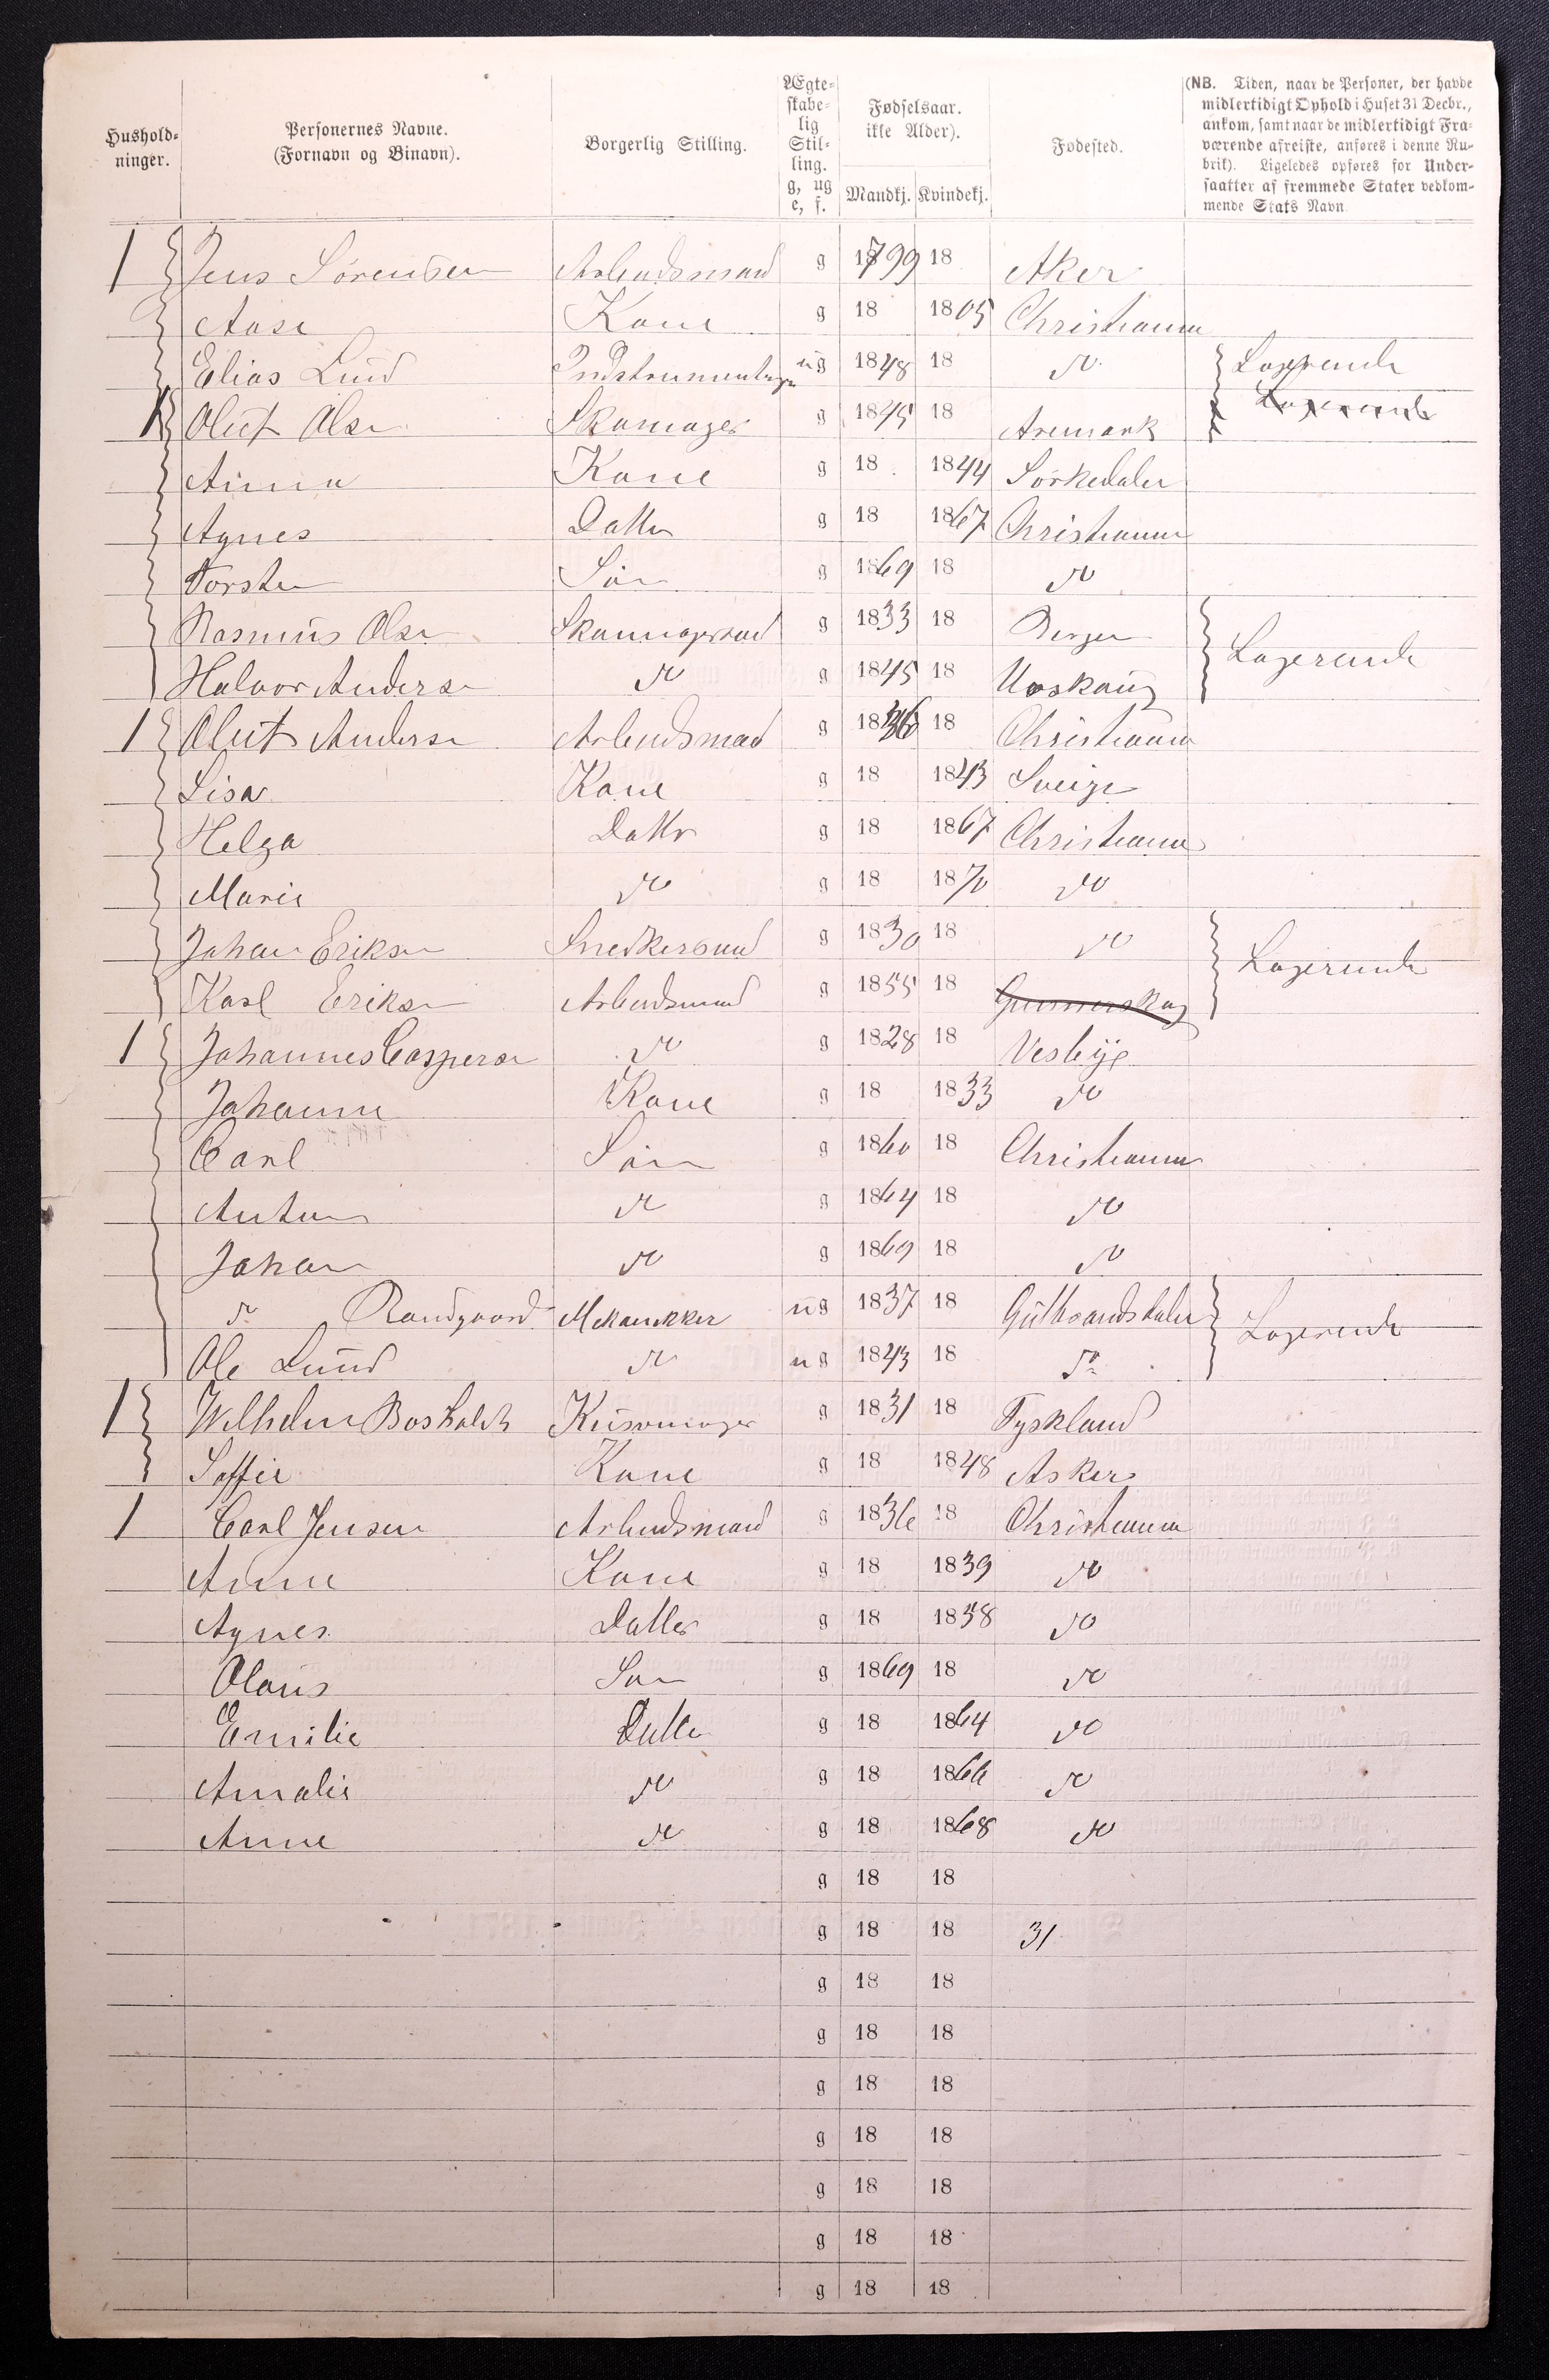 Hushold-
ninger.
Personernes Navne.
(Fornavn og Binavn).
Borgerlig Stilling.
Ægte-
skabe-
lig
Stil-
ling.
g, ug
e, f.
Fødselsaar.
ikke Alder).
Mandkj. Kvindekj.
Fødested.
(NB. Tiden, naar de Personer, der havde
midlertidigt Ophold i Huset 31 Decbr.,
ankom, samt naar de midlertidigt Fra-
værende afreiste, anføres i denne Ru-
brik). Ligeledes opføres for Under-
saatter af fremmede Stater vedkom-
mende Stats Navn.
1 Jens Sørensen Arbeidsmand g 1799 18 Aker
Aase Kone g 18 1805 Christiania
Elias Lund ug 1848 18 do Logerende
1 Oluf Olsen Skomager g 1845 18 Aremark Logerende
Anna Kone g 18 1844 Sørkedalen
Agnes Datter g 18 1867 Christiania
Torsten Søn g 1869 18 do
Rasmus Olsen Skomagersvend g 1833 18 Bergen Logerende
Halvor Andersen do g 1845 18
1 Oluf Andersen Arbeidsmand g 1836 18 Christiania
Lisa Kone g 18 1843 Sverige
Helga Datter g 18 1867 Christiania
Marie do g 18 1870 do
Johan Eriksen Snedkersvend g 1830 18 do Logerende
Karl Eriksen Arbeidsmand g 1855 18
1 Johannes Caspersen do g 1828 18 Vestbye
Johanne Kone g 18 1833 do
Carl Søn g 1860 18 Christiania
Anton do g 1864 18 do
Johan do g 1869 18 do
do Randgaard Mekanikker ug 1837 18 Gulbrandsdalen Logerende
Ole Lund do ug 1843 18 do
1 Wilhelm g 1831 18 Tyskland
Soffie Kone g 18 1848 Asker
1 Carl Jensen Arbeidsmand g 1836 18 Christiania
Anne Kone g 18 1839 do
Agnes Datter g 18 1858 do
Olaus Søn g 1869 18 do
Emilie Datter g 18 1864 do
Amalie do g 18 1866 do
Anne do g 18 1868 do
g 18 18
g 18 18 31
g 18 18
g 18 18
g 18 18
g 18 18
g 18 18
g 18 18
g 18 18